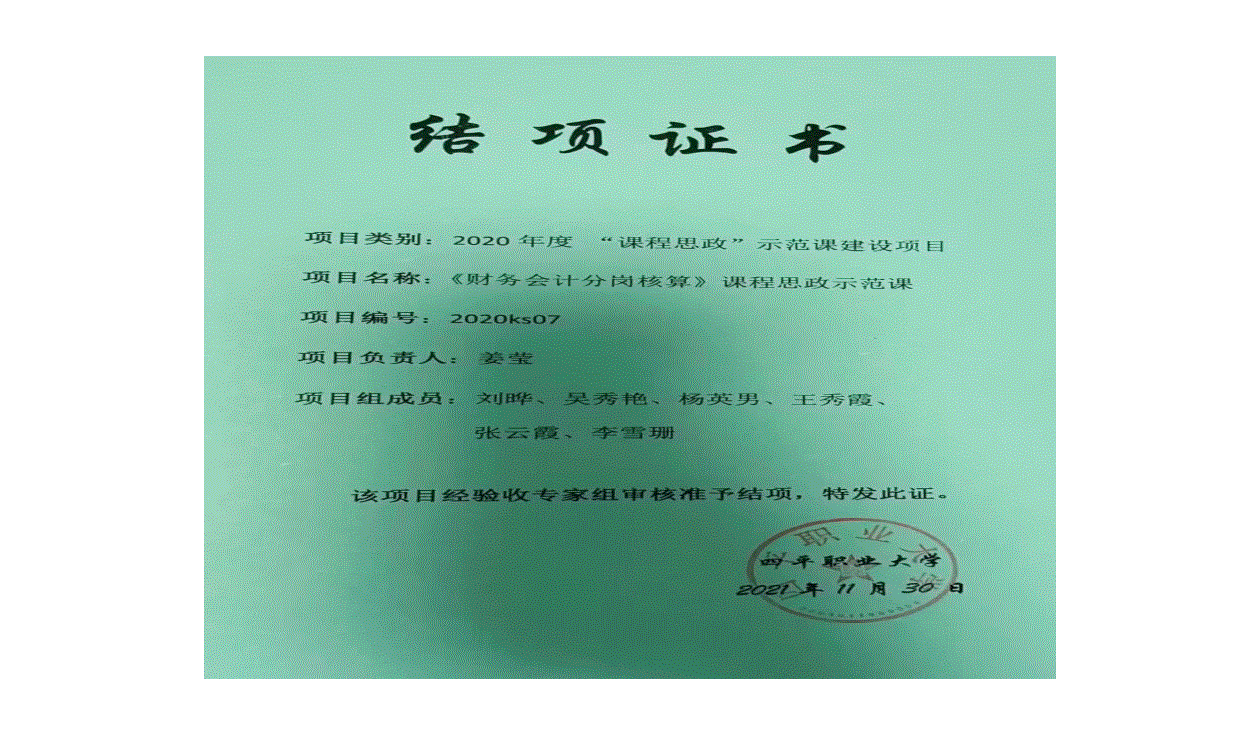 结项证书
项目类别：2020年度 “课程思政”示范课建设项目
项目名称：《财务会计分岗核算》课程思政示范课
项目编号：2020ks07
项目负责人：姜莹
项目组成员：刘晔、吴秀艳、杨英男、王秀霞、
张云霞、李雪珊
该项目经验收专家组审核准予结项，特发此证。
四平职业大学
2021年11月30日